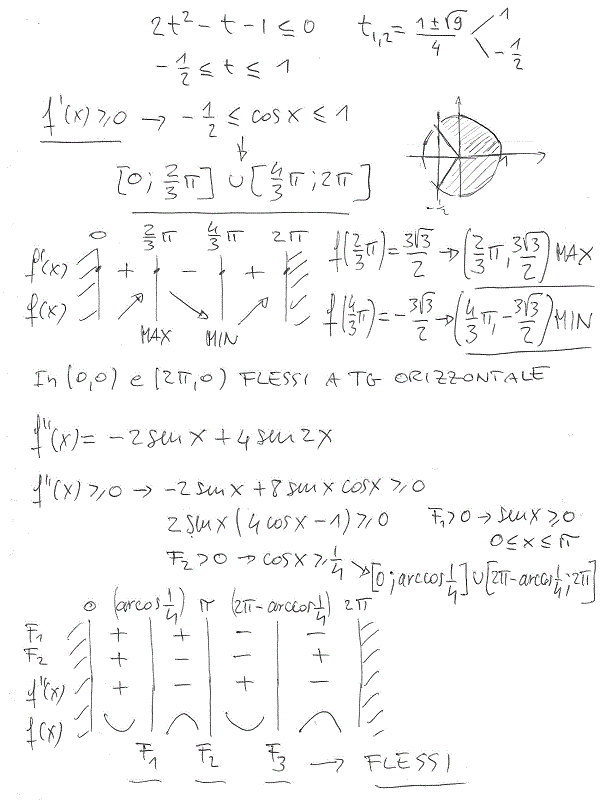 2t² - t - 1 ≤ 0   t₁,₂ = (1 ± √9)/4   1   -1/2
-1/2 ≤ t ≤ 1
f'(x) ≥ 0 → -1/2 ≤ cos x ≤ 1
-1/2   1
[0; 2/3 π] ∪ [4/3 π; 2π]
0   2/3 π   4/3 π   2π
f'(x)   +   -   +
f(x)   ↗   ↘   ↗
MAX   MIN
f(2/3 π) = 3√3/2 → (2/3 π, 3√3/2) MAX
f(4/3 π) = -3√3/2 → (4/3 π, -3√3/2) MIN
In (0,0) e (2π,0) FLESSI A TG ORIZZONTALE
f''(x) = -2 sen x + 4 sen 2x
f''(x) ≥ 0 → -2 sen x + 8 sen x cos x ≥ 0
2 sen x (4 cos x - 1) ≥ 0   F₁ > 0 → sen x ≥ 0
0 ≤ x ≤ π
F₂ > 0 → cos x ≥ 1/4 → [0; arccos 1/4] ∪ [2π - arccos 1/4; 2π]
0   (arcos 1/4)   π   (2π - arccos 1/4)   2π
F₁   +   +   -   -
F₂   +   -   -   +
f''(x)   +   -   +   -
f(x)   ◡   ◠   ◡   ◠
F₁   F₂   F₃ → FLESSI